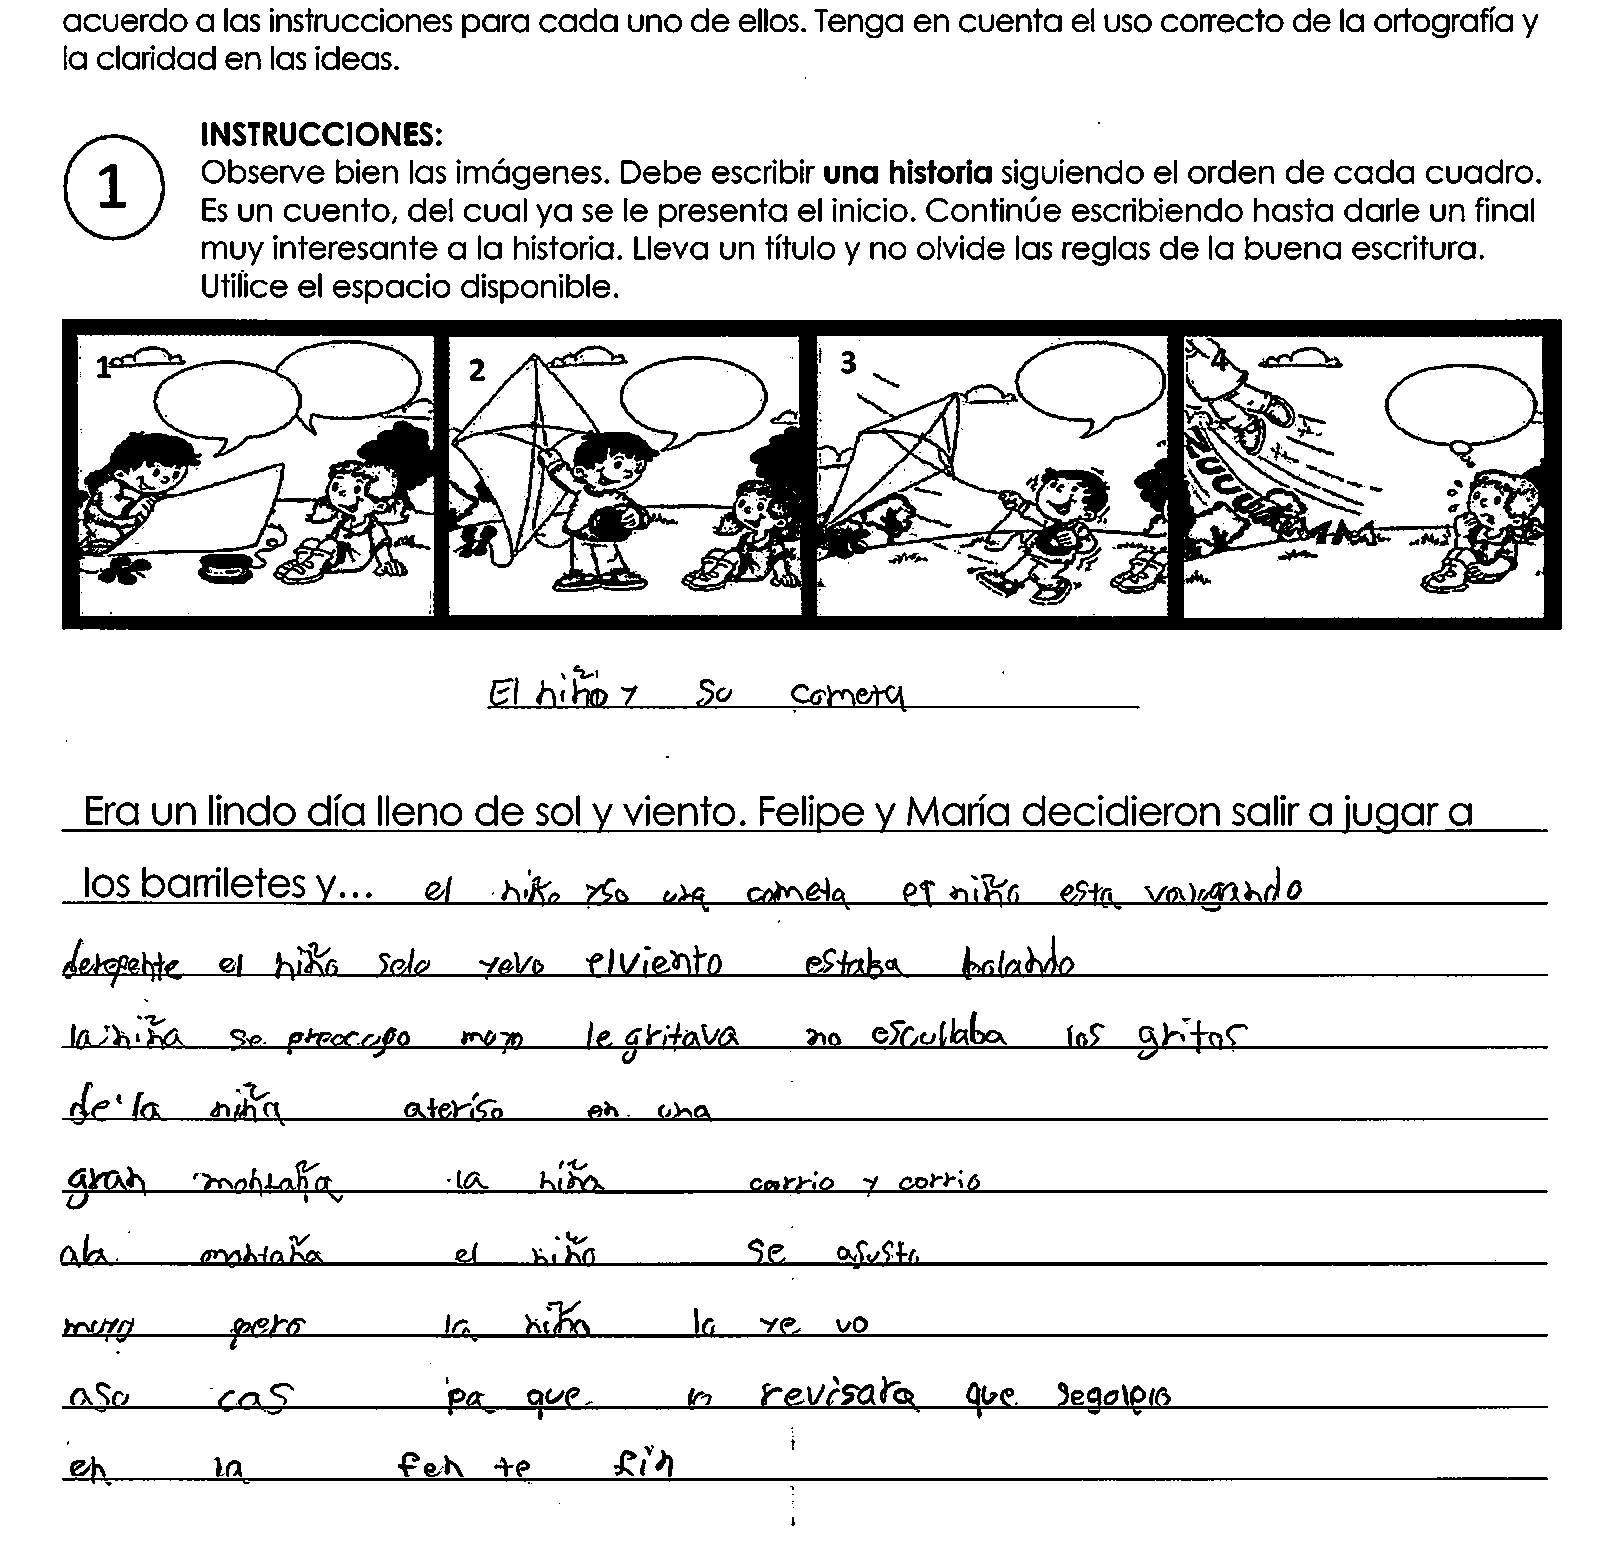 acuerdo a las instrucciones para cada uno de ellos. Tenga en cuenta el uso correcto de la ortografía y
la claridad en las ideas.
1
INSTRUCCIONES:
Observe bien las imágenes. Debe escribir una historia siguiendo el orden de cada cuadro.
Es un cuento, del cual ya se le presenta el inicio. Continúe escribiendo hasta darle un final
muy interesante a la historia. Lleva un título y no olvide las reglas de la buena escritura.
Utilice el espacio disponible.
1 2 3 4
El niño y su cometa
Era un lindo día lleno de sol y viento. Felipe y María decidieron salir a jugar a
los barriletes y... el niño una cometa el niño esta
derepente el niño selo yevo elviento estaba bolando
la niña se preocupo le gritava no escullaba los gritos
de la niña ateriso en una
gran montaña la niña corrio y corrio
ala montaña el niño se asusto
muyo pero la niña lo ye vo
asu cas pa que lo revisara que segolpio
en la fen te fin